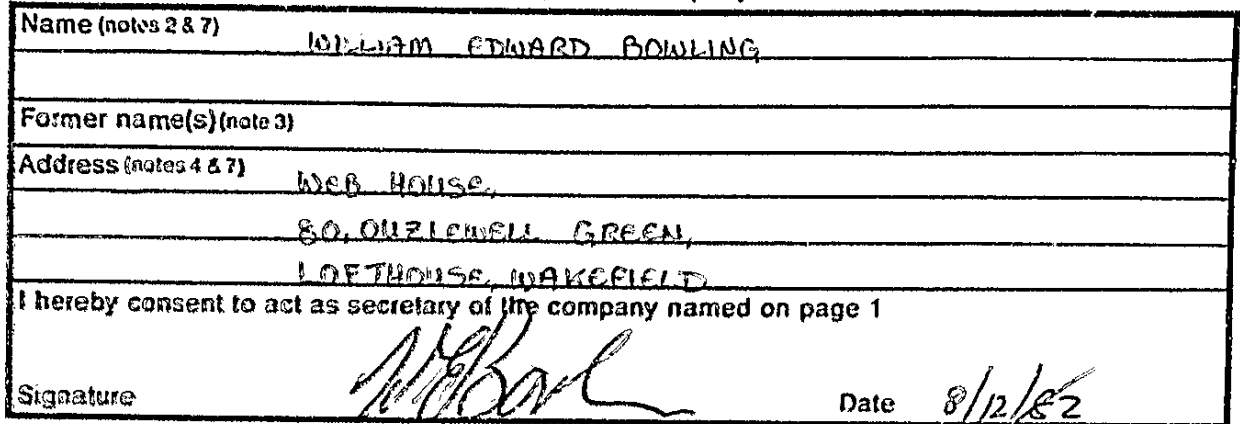 Name (notes 2 & 7)
WILLIAM EDWARD BOWLING
Former name(s) (note 3)
Address (notes 4 & 7)
WEB HOUSE,
80, OUZLEWELL GREEN,
LOFTHOUSE, WAKEFIELD
I hereby consent to act as secretary of the company named on page 1
Signature Date 8/12/82